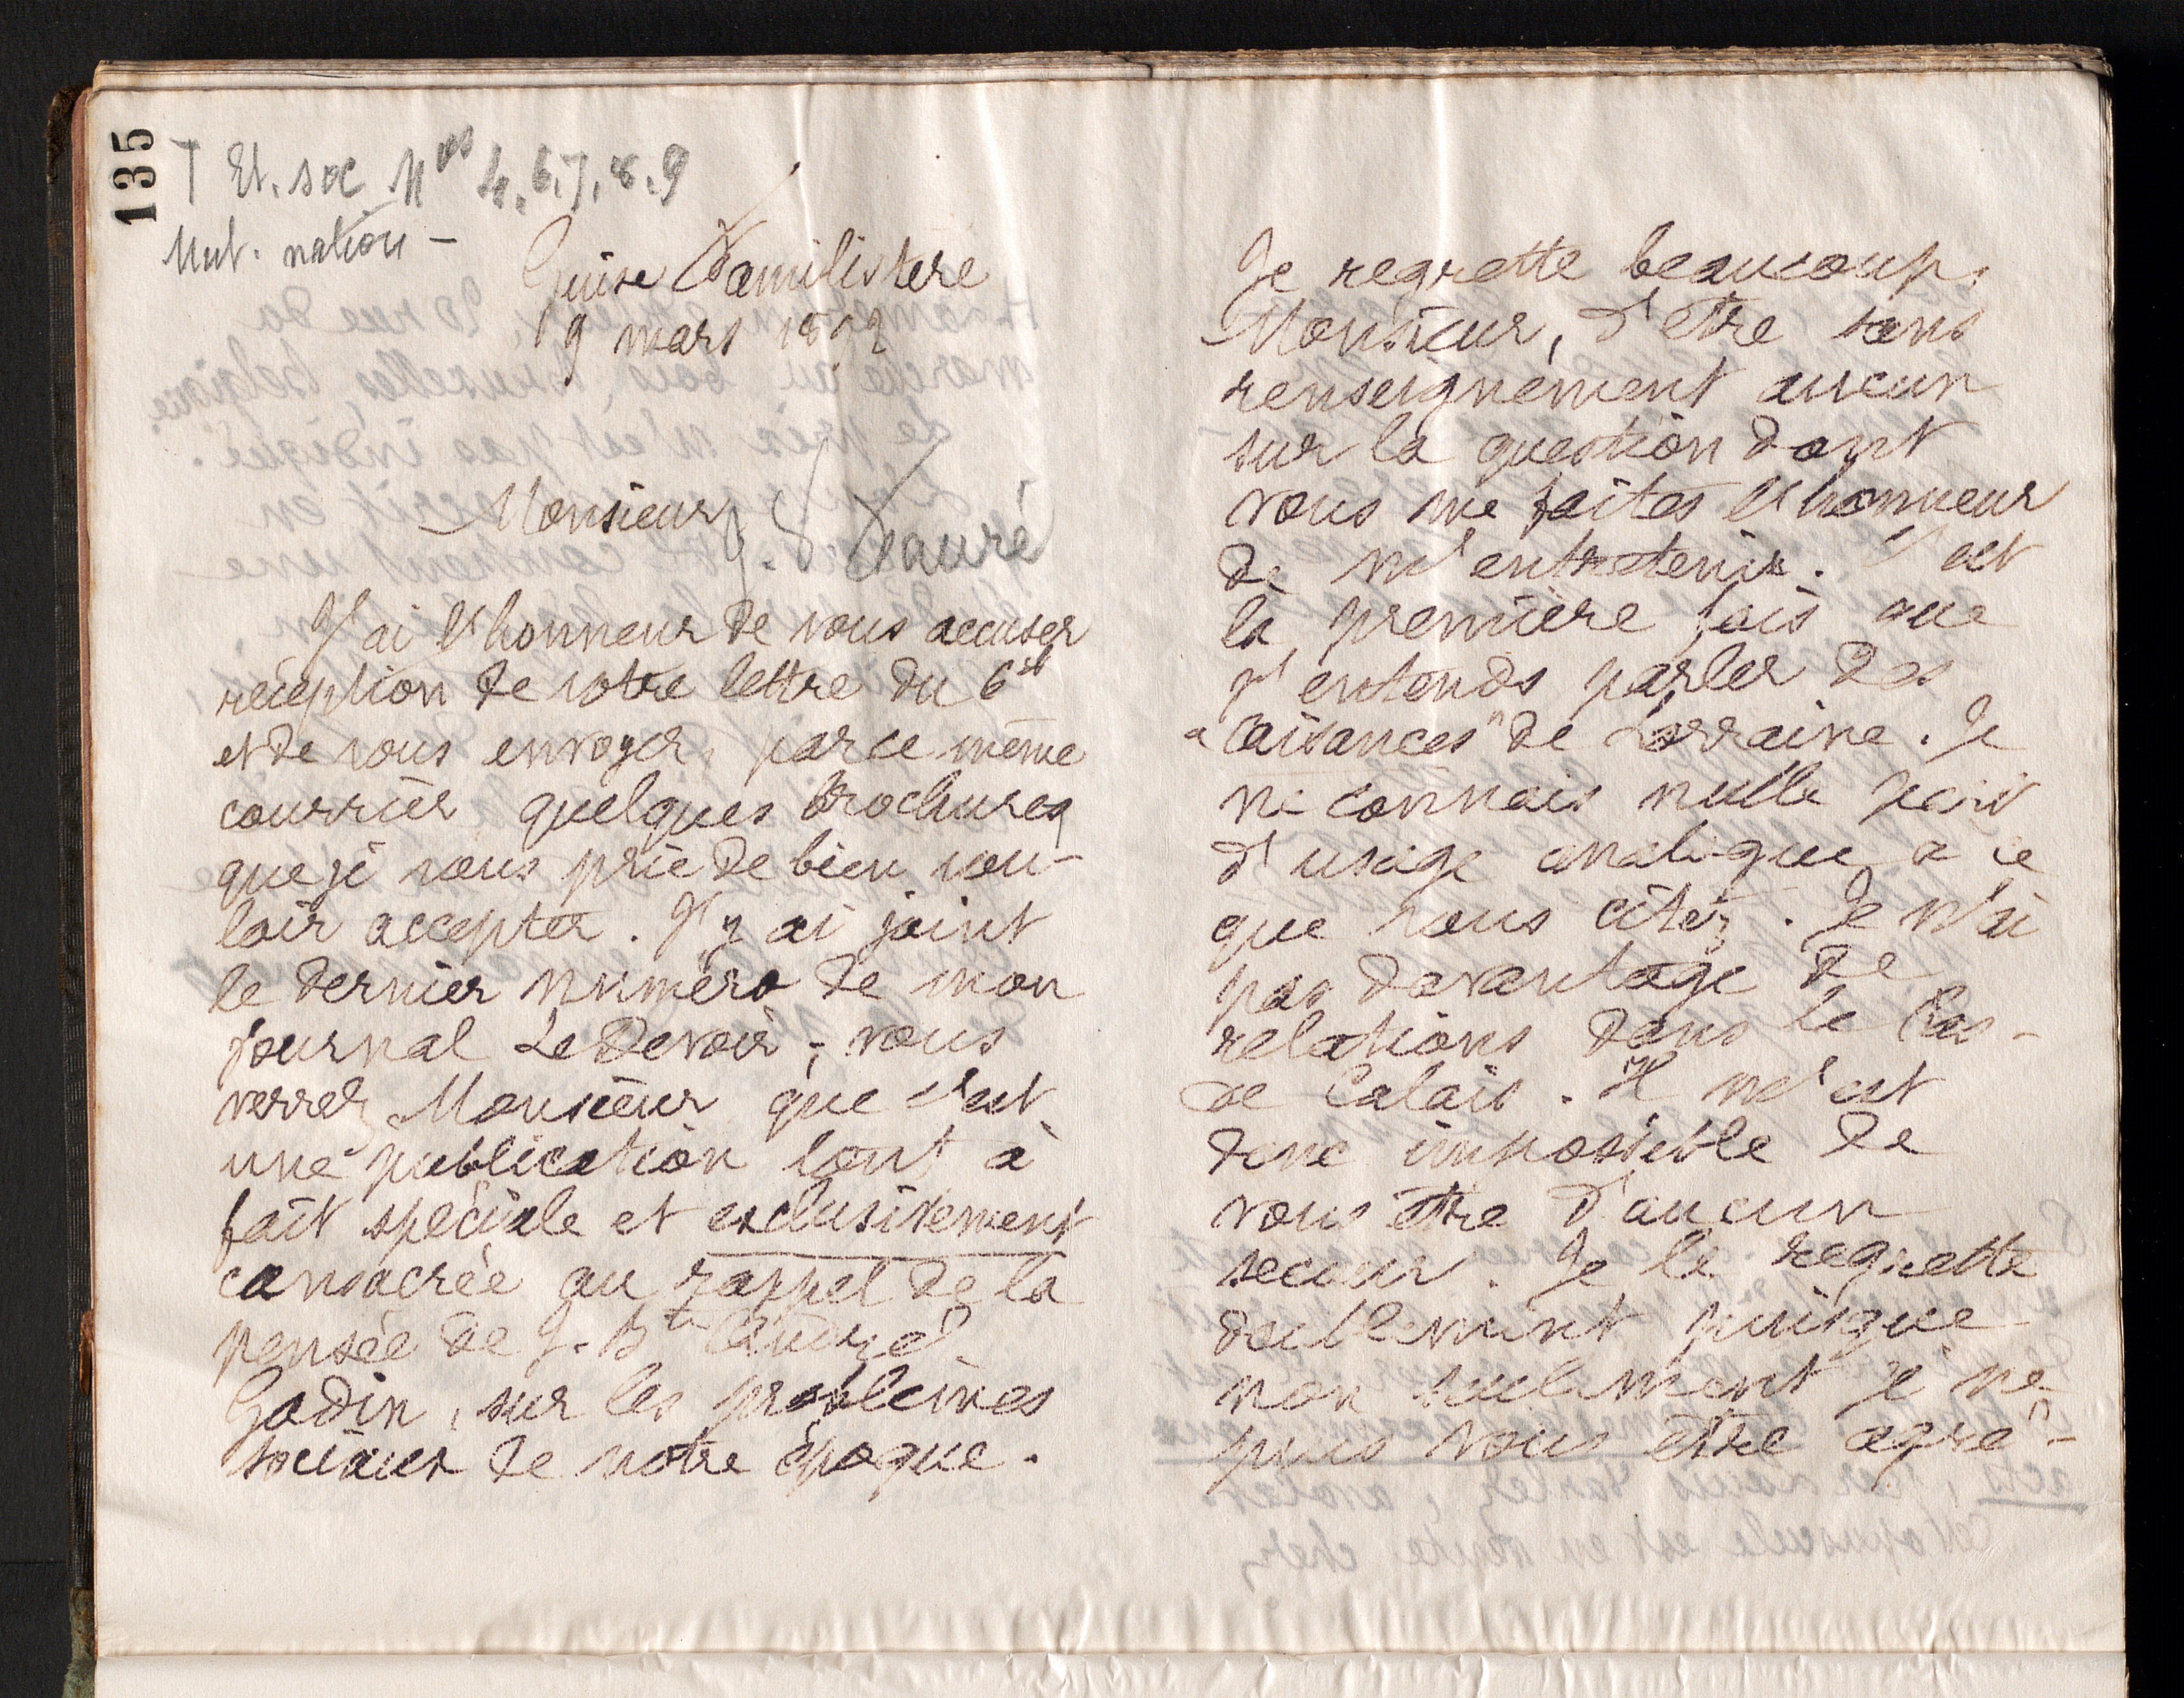 135
T Et. soc Nos 4, 6, 7, 8, 9
Mut. nation -
Guise Familistère
9 mars 1892
Monsieur J. Fauré
J'ai l'honneur de vous accuser
réception de votre lettre du 6 ct
et de vous envoyer, par ce même
courrier quelques brochures
que je vous prie de bien vou-
loir accepter. J'y ai joint
le dernier numéro de mon
journal Le Devoir ; vous
verrez Monsieur que c'est
une publication tout à
fait spéciale et exclusivement
consacrée au rappel de la
pensée de J. Bte André
Godin, sur les problèmes
sociaux de notre époque.
Je regrette beaucoup,
Monsieur, d'être sans
renseignement aucun
sur la question dont
vous me faites l'honneur
de m'entretenir. C'est
la première fois que
j'entends parler des
"aisances" de Lorraine. Je
ne connais nulle part
d'usage analogue à ce
que vous citez. Je n'ai
pas davantage de
relations dans le Pas-
de Calais. Il m'est
donc impossible de
vous être d'aucun
secours. Je le regrette
doublement puisque
non seulement je ne
puis vous être agré-